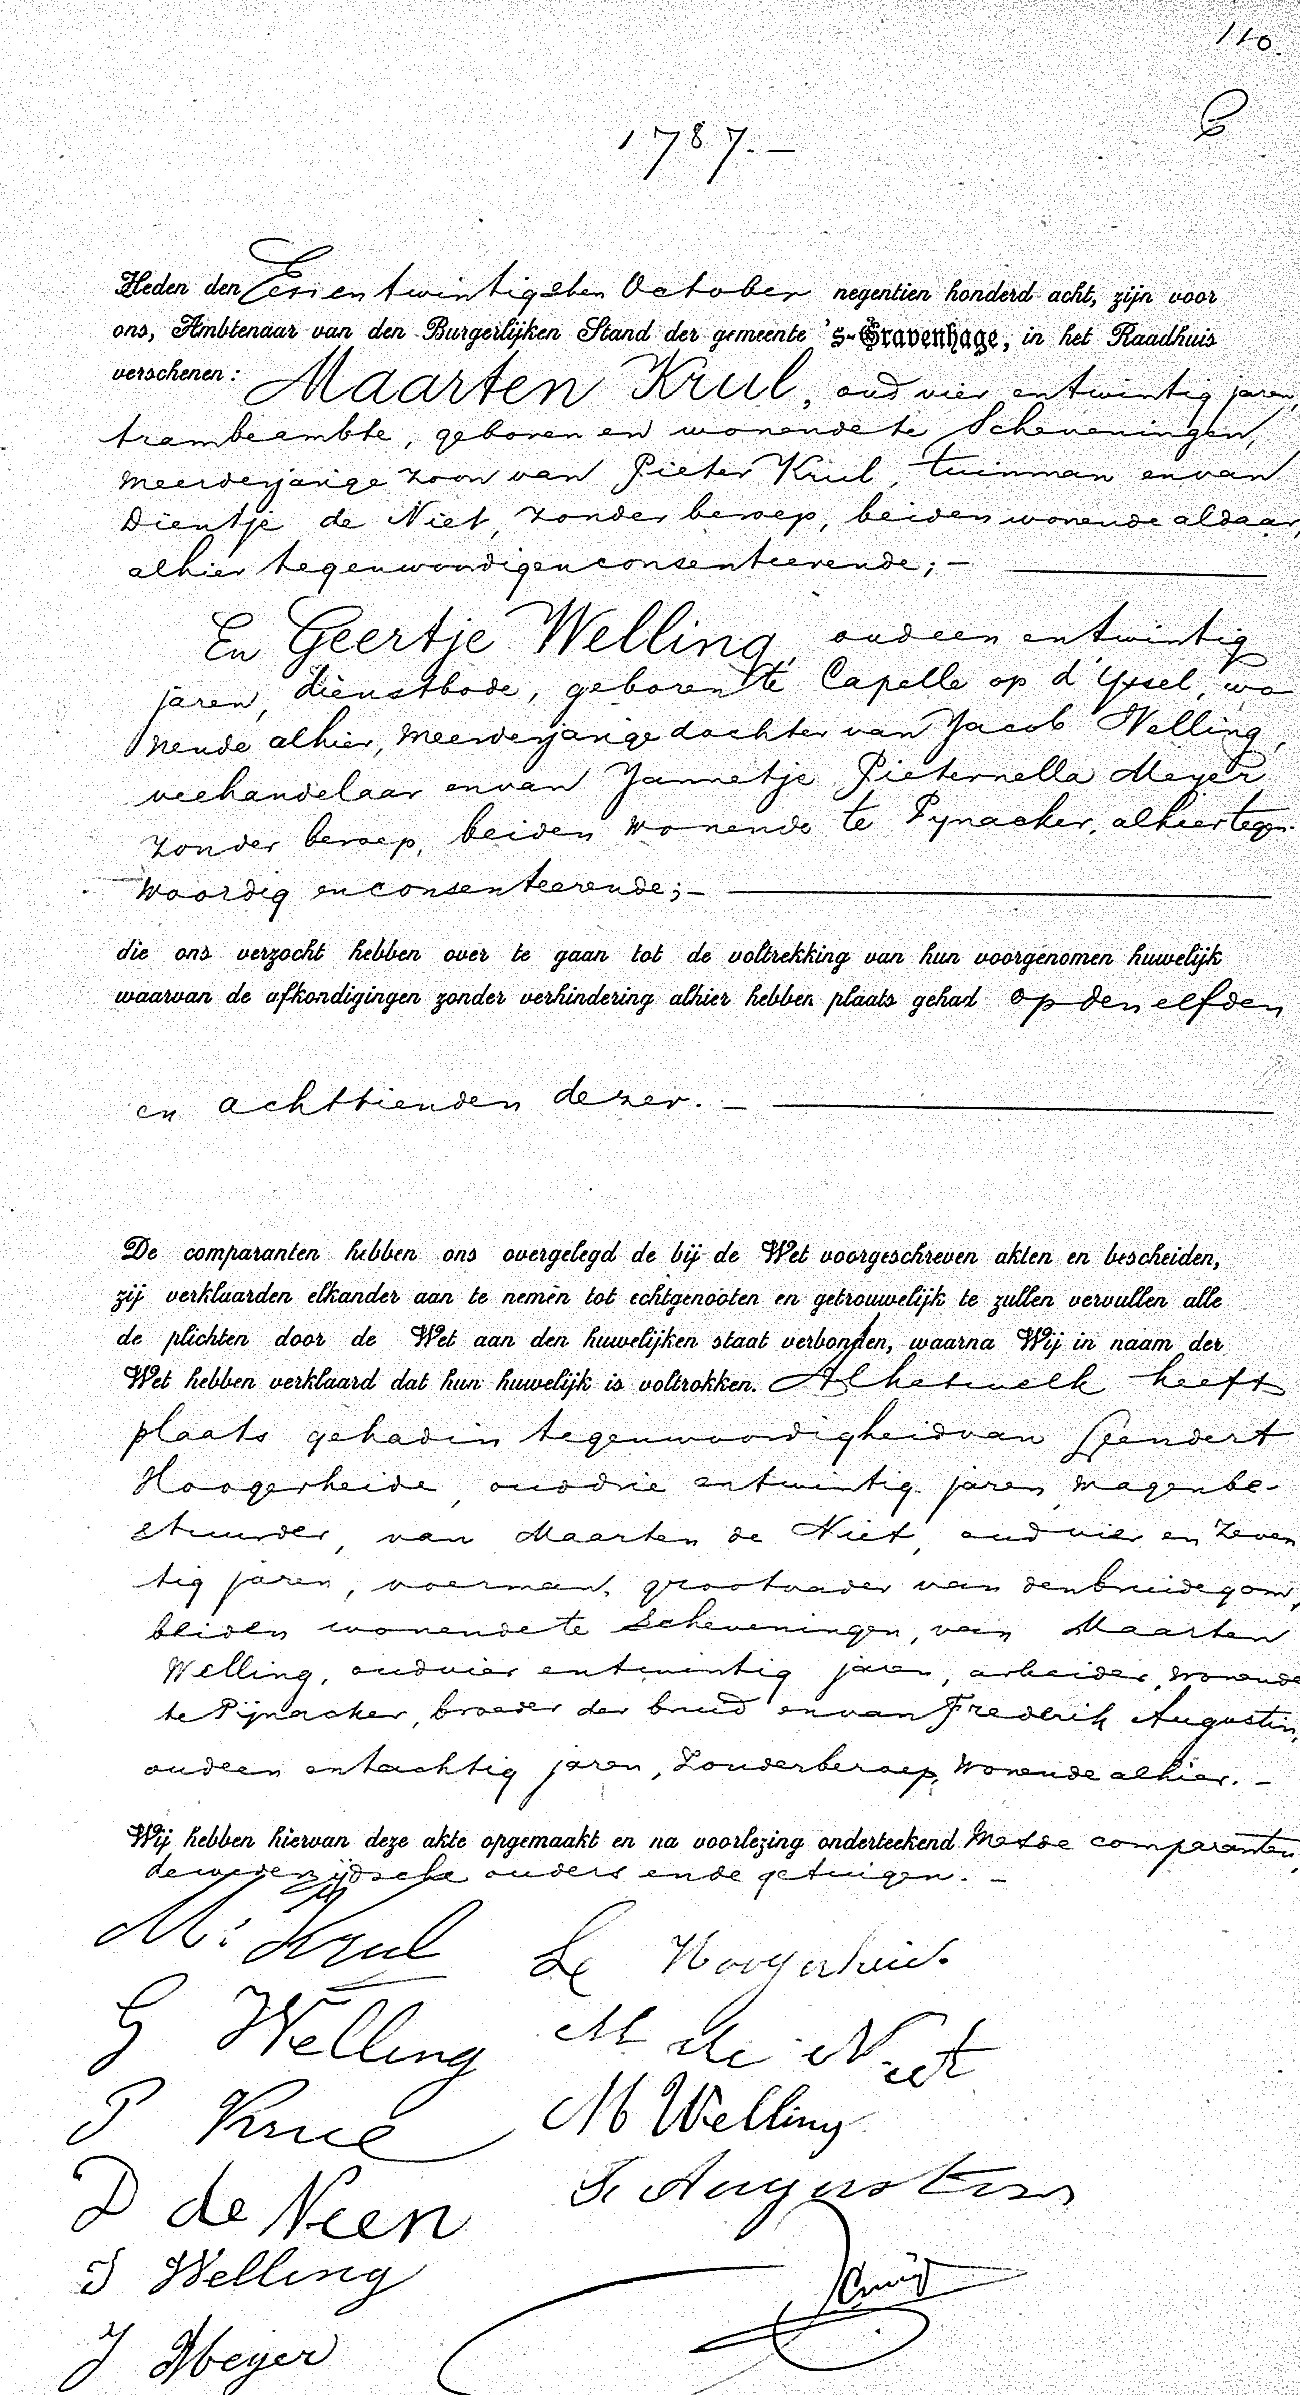 110.
1787. —
Heden den Een en twintigsten October negentien honderd acht, zijn voor
ons, Ambtenaar van den Burgerlijken Stand der gemeente 's-Gravenhage, in het Raadhuis
verschenen: Maarten Krul, oud vier en twintig jaren,
trambeambte, geboren en wonende te Scheveningen,
meerderjarige zoon van Pieter Krul, tuinman en van
Dientje de Niet, zonder beroep, beiden wonende aldaar,
alhier tegenwoordig en consenteerende; —
En Geertje Welling, oud een en twintig
jaren, dienstbode, geboren te Capelle op d'Ysel, wo
nende alhier, meerderjarige dochter van Jacob Welling,
veehandelaar en van Jannetje Pieternella Meyer
zonder beroep, beiden wonende te Pynacker, alhier tegen-
woordig en consenteerende; —
die ons verzocht hebben over te gaan tot de voltrekking van hun voorgenomen huwelijk
waarvan de afkondigingen zonder verhindering alhier hebben plaats gehad op den elfden
en achttienden dezer. —
De comparanten hebben ons overgelegd de bij de Wet voorgeschreven akten en bescheiden,
zij verklaarden elkander aan te nemen tot echtgenooten en getrouwelijk te zullen vervullen alle
de plichten door de Wet aan den huwelijken staat verbonden, waarna Wij in naam der
Wet hebben verklaard dat hun huwelijk is voltrokken. Al hetwelk heeft
plaats gehad in tegenwoordigheid van Leendert
Hoogerheide, oud drie en twintig jaren, wagenbe-
stuurder, van Maarten de Niet, oud vier en zeven
tig jaren, voerman, grootvader van den bruidegom,
beiden wonende te Scheveningen, van Maarten
Welling, oud vier en twintig jaren, arbeider, wonende
te Pijnacker, broeder der bruid en van Frederik Augustin,
oud een en tachtig jaren, zonder beroep, wonende alhier. —
Wij hebben hiervan deze akte opgemaakt en na voorlezing onderteekend met de comparanten,
de wederzijdsche ouders en de getuigen. —
M: Krul
Le Hoogerheid.
G Welling
M de Niet
P Krul
M Welling
D de Nien
F. Augustin
J Welling
J Meyer